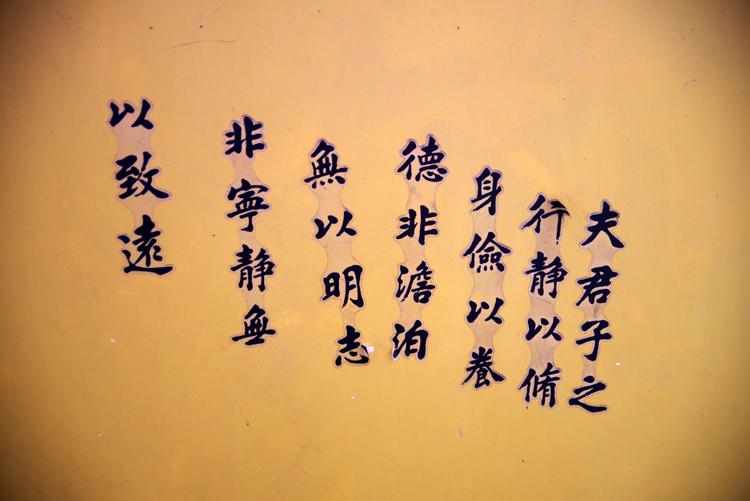 夫君子之
行静以脩
身儉以養
德非澹泊
無以明志
非寧静無
以致遠